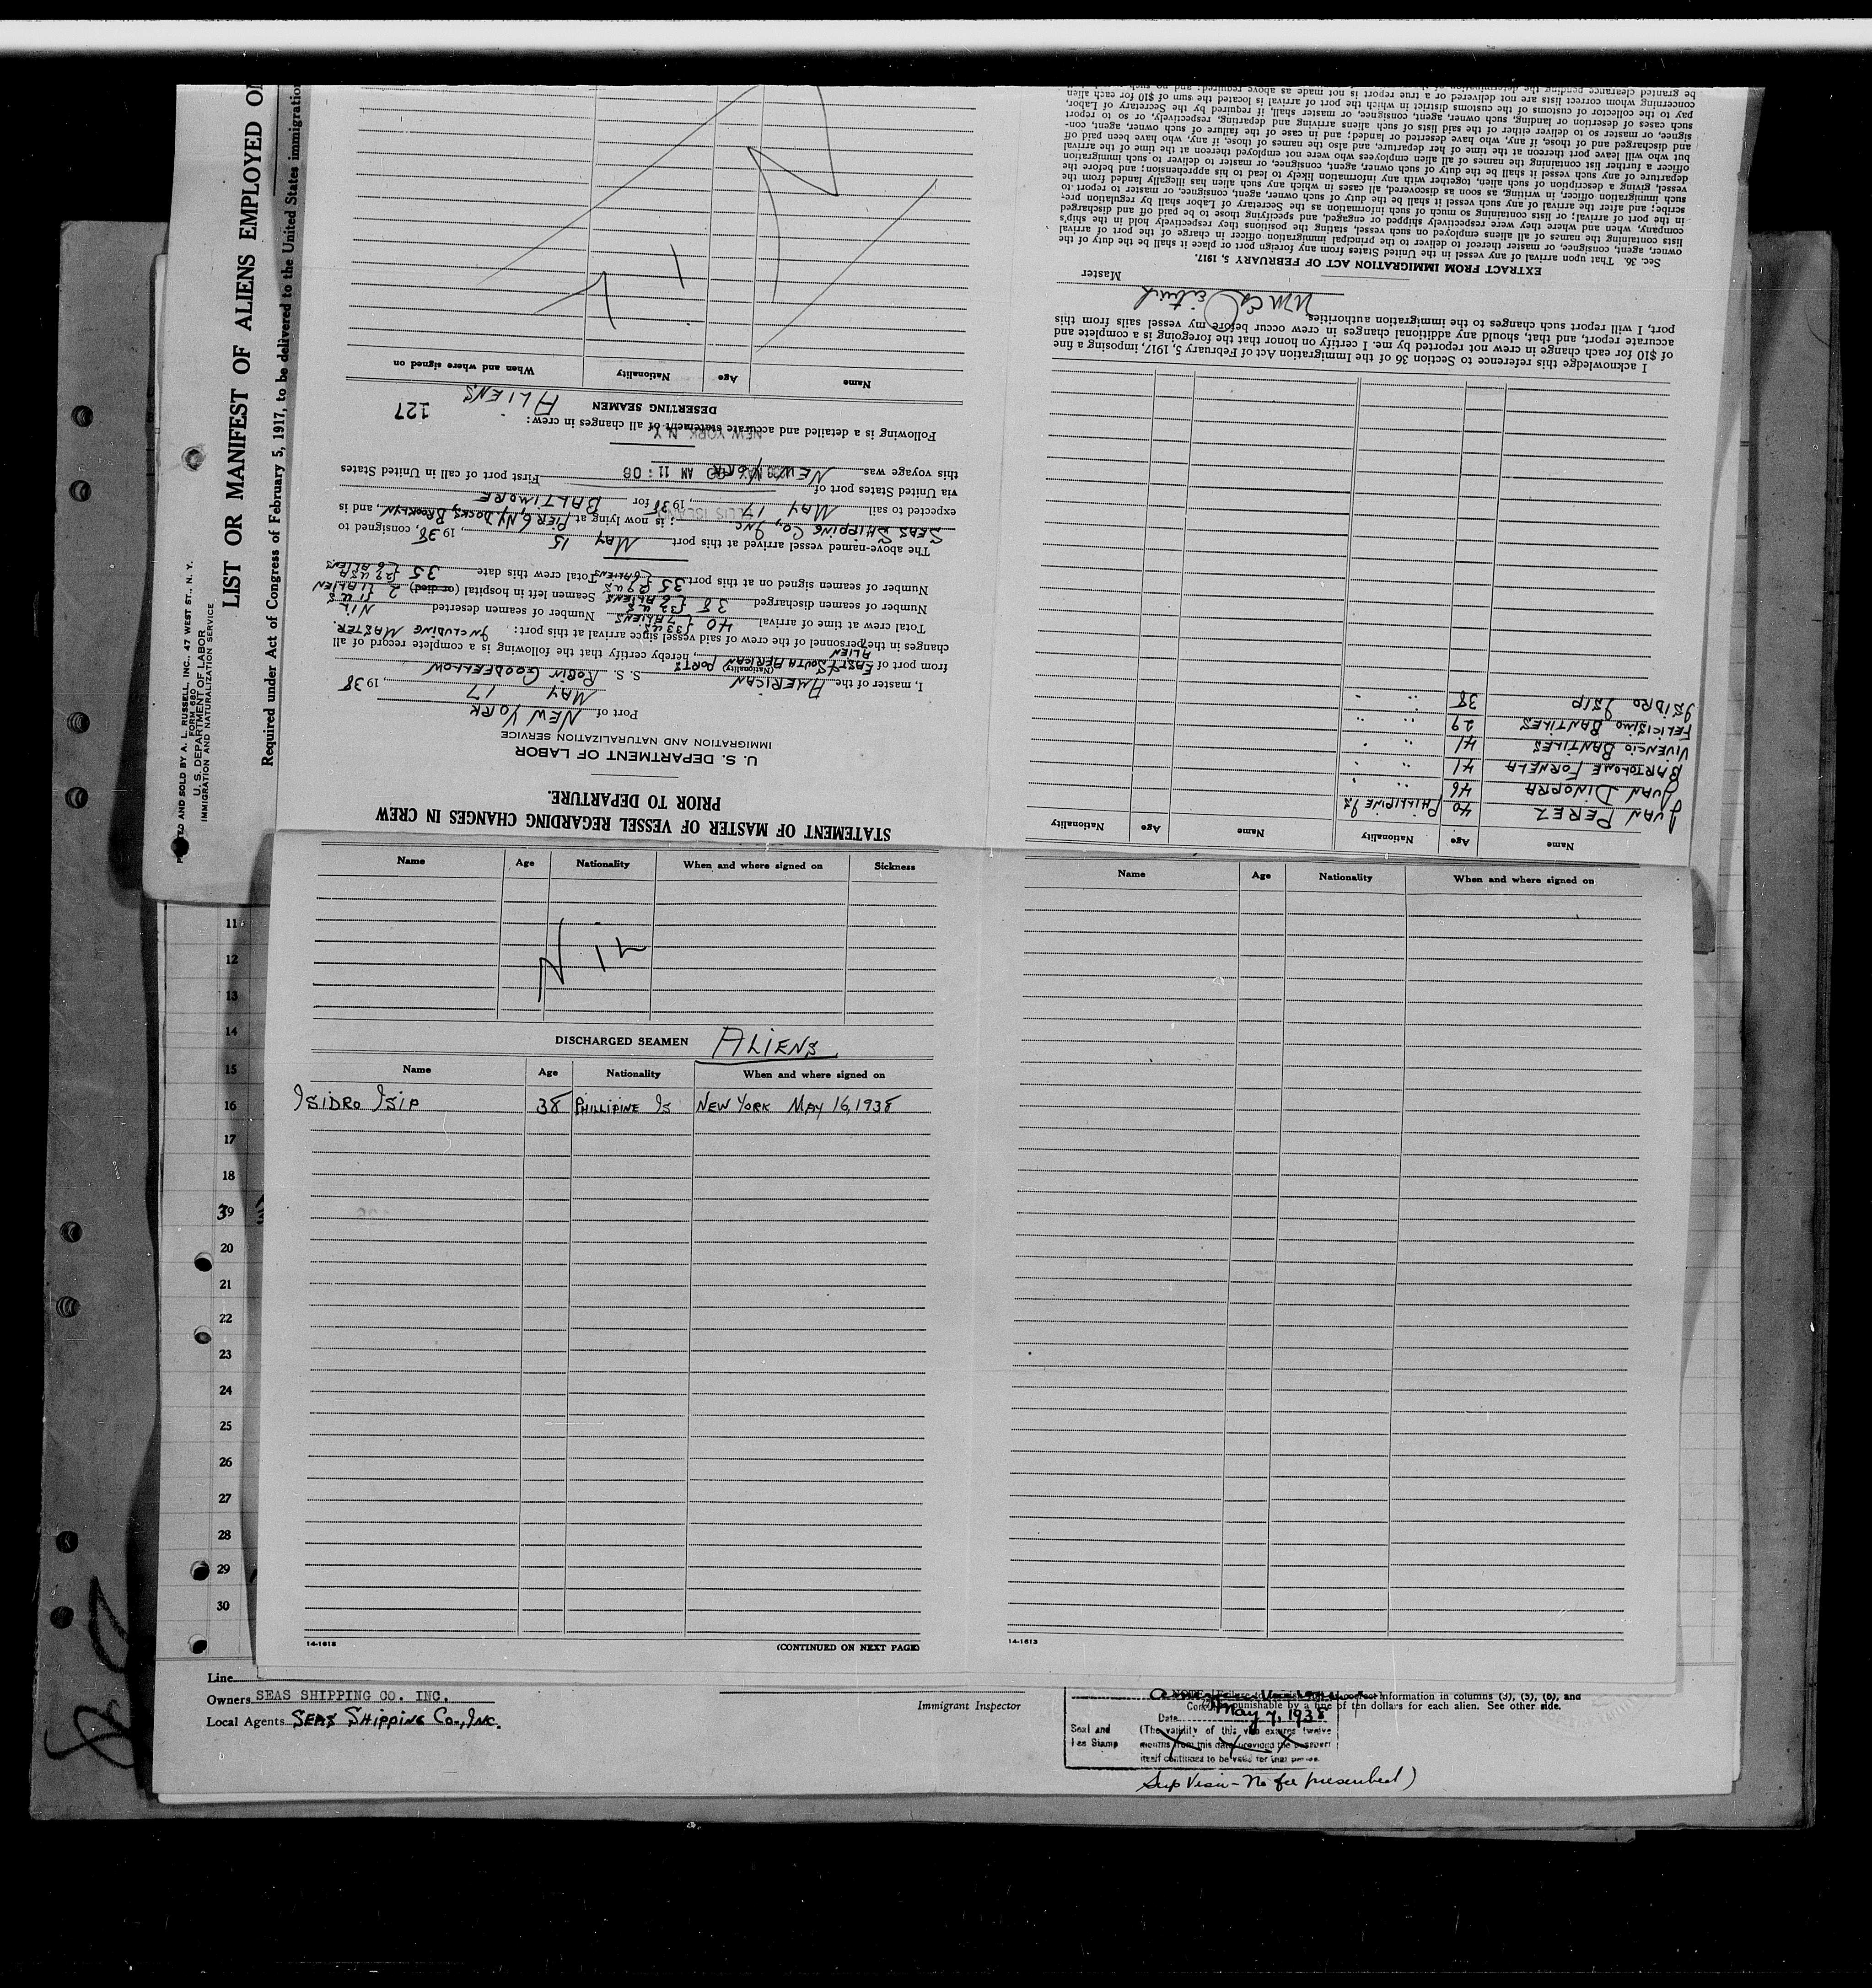 LIST OR MANIFEST OF ALIENS EMPLOYED ON
Required under Act of Congress of February 5, 1917, to be delivered to the United States immigration
AND SOLD BY A. L. RUSSELL, INC., 47 WEST ST., N. Y.
FORM 680
U. S. DEPARTMENT OF LABOR
IMMIGRATION AND NATURALIZATION SERVICE
STATEMENT OF MASTER OF VESSEL REGARDING CHANGES IN CREW
PRIOR TO DEPARTURE.
U. S. DEPARTMENT OF LABOR
IMMIGRATION AND NATURALIZATION SERVICE
Port of NEW YORK
MAY 17, 1938
I, master of the AMERICAN S. S. ROBIN GOODFELLOW
(Nationality)
from port of EAST & SOUTH AFRICAN PORTS, hereby certify that the following is a complete record of all
ALIEN
changes in the personnel of the crew of said vessel since arrival at this port: INCLUDING MASTER.
Total crew at time of arrival 40 {33 US 7 ALIENS Number of seamen deserted NIL
Number of seamen discharged 38 {32 US 6 ALIENS Seamen left in hospital (or died) 2 {1 US 1 ALIEN
Number of seamen signed on at this port 35 {29 US 6 ALIENS Total crew this date 35 {29 USA 6 ALIENS
The above-named vessel arrived at this port MAY 15, 1938, consigned to
SEAS SHIPPING CO., INC; is now lying at PIER 6 NY DOCKS, BROOKLYN, and is
expected to sail MAY 17, 1938 for BALTIMORE
via United States port of
First port of call in United States
this voyage was NEW YORK
AM 11:08
NEW YORK N Y
Following is a detailed and accurate statement of all changes in crew:
DESERTING SEAMEN ALIENS
127
Name Age Nationality When and where signed on
Name Age Nationality When and where signed on Sickness
Nil
DISCHARGED SEAMEN ALIENS
Name Age Nationality When and where signed on
ISIDRO ISIP 38 PHILLIPINE IS NEW YORK MAY 16, 1938
14-1613 (CONTINUED ON NEXT PAGE)
Name Age Nationality When and where signed on
14-1613
Name Age Nationality Name Age Nationality
JUAN PEREZ 40 PHILLIPINE IS
JUAN DINORRA 46 " "
BARTOLOME FORNELA 41 " "
VIVENCIO BANTILES 41 " "
FELICISIMO BANTILES 29 " "
ISIDRO ISIP 38 " "
I acknowledge this reference to Section 36 of the Immigration Act of February 5, 1917, imposing a fine
of $10 for each change in crew not reported by me. I certify on honor that the foregoing is a complete and
accurate report, and that, should any additional changes in crew occur before my vessel sails from this
port, I will report such changes to the immigration authorities.
Master
EXTRACT FROM IMMIGRATION ACT OF FEBRUARY 5, 1917.
Sec. 36. That upon arrival of any vessel in the United States from any foreign port or place it shall be the duty of the
owner, agent, consignee, or master thereof to deliver to the principal immigration officer in charge of the port of arrival
lists containing the names of all aliens employed on such vessel, stating the positions they respectively hold in the ship's
company, when and where they were respectively shipped or engaged, and specifying those to be paid off and discharged
in the port of arrival; or lists containing so much of such information as the Secretary of Labor shall by regulation pre-
scribe; and after the arrival of any such vessel it shall be the duty of such owner, agent, consignee, or master to report to
such immigration officer, in writing, as soon as discovered, all cases in which any such alien has illegally landed from the
vessel, giving a description of such alien, together with any information likely to lead to his apprehension; and before the
departure of any such vessel it shall be the duty of such owner, agent, consignee, or master to deliver to such immigration
officer a further list containing the names of all alien employees who were not employed thereon at the time of the arrival
but who will leave port thereon at the time of her departure, and also the names of those, if any, who have been paid off
and discharged and of those, if any, who have deserted or landed; and in case of the failure of such owner, agent, con-
signee, or master so to deliver either of the said lists of such aliens arriving and departing, respectively, or so to report
such cases of desertion or landing, such owner, agent, consignee, or master shall, if required by the Secretary of Labor,
pay to the collector of customs of the customs district in which the port of arrival is located the sum of $10 for each alien
concerning whom correct lists are not delivered or a true report is not made as above required; and no such
be granted clearance pending the determination of
11
12
13
14
15
16
17
18
39
20
21
22
23
24
25
26
27
28
29
30
Line
Owners SEAS SHIPPING CO. INC.
Local Agents SEAS SHIPPING CO., INC.
Immigrant Inspector
information in columns (3), (5), (6), and
punishable by a fine of ten dollars for each alien. See other side.
Date May 7, 1938
Seal and
Fee Stamp
(The validity of this visa expires twelve
months from this date provided the passport
itself continues to be valid for that period.
Sup Visa - No fee prescribed)